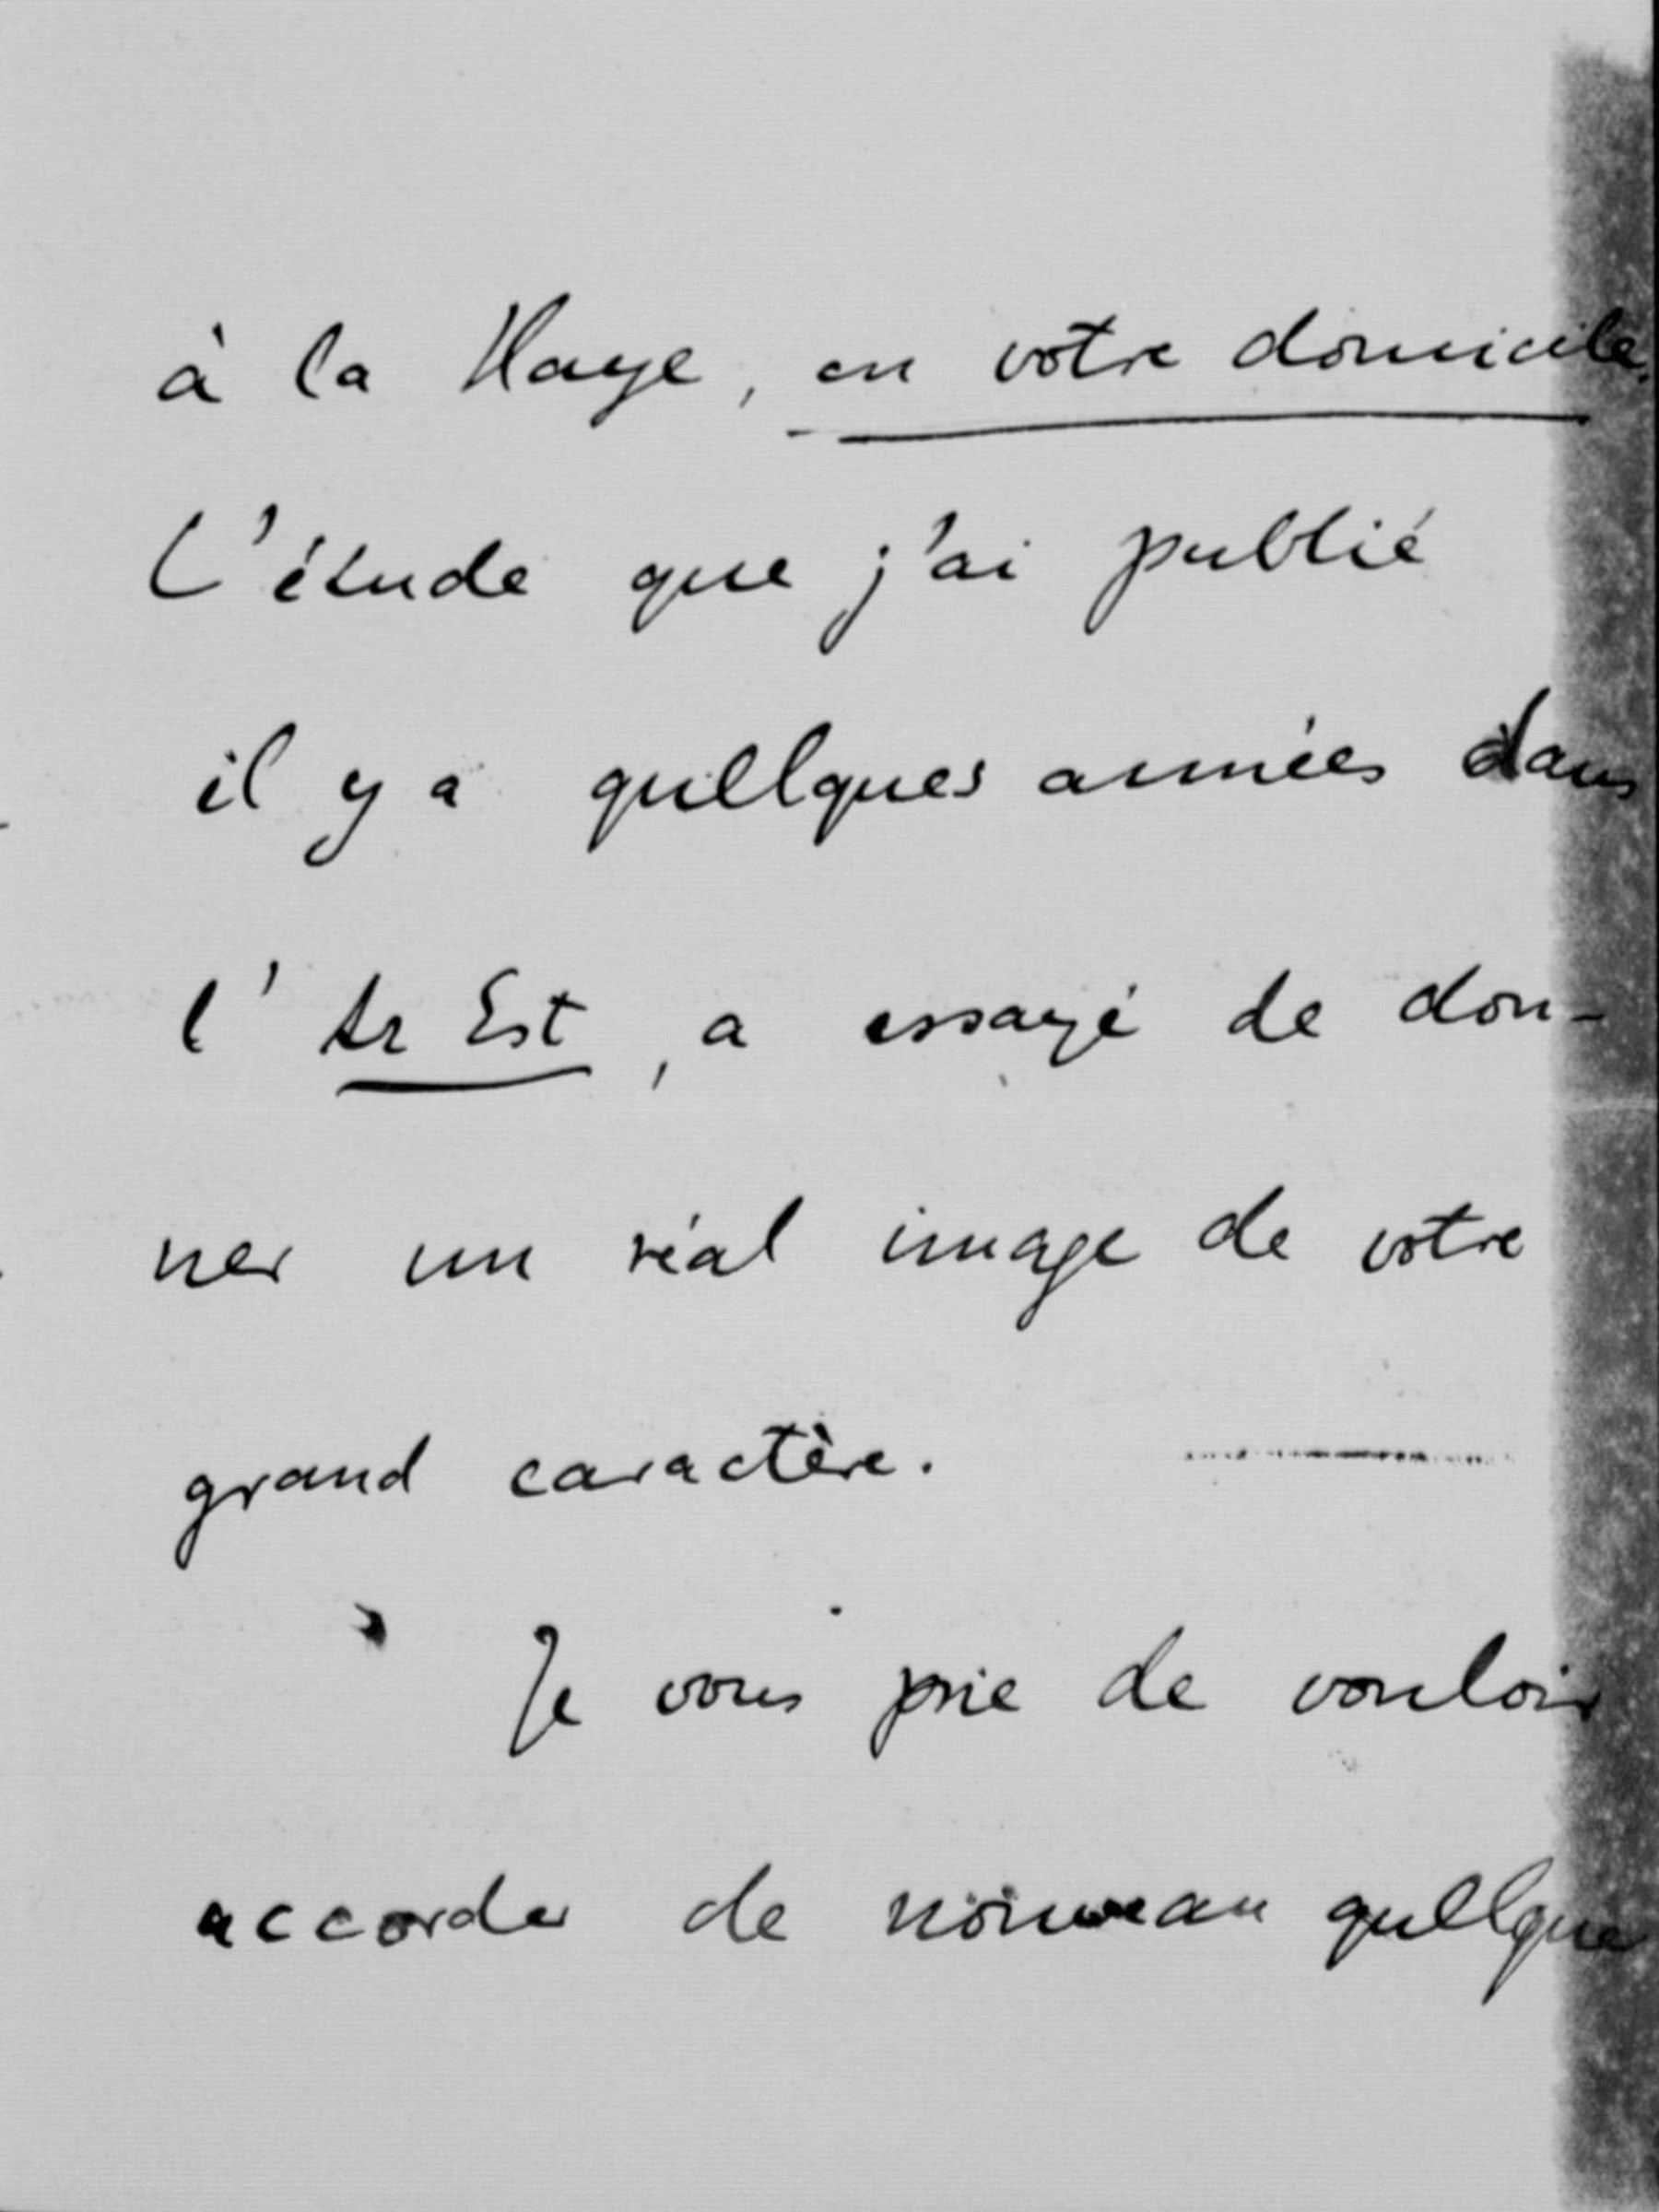 à la Haye, en votre domicile.
L'étude que j'ai publié
il y a quellques années dans
l' Az Est, a essayé de don-
ner un réal image de votre
grand caractère.
Je vous prie de vouloir
accorder de nouveau quellque